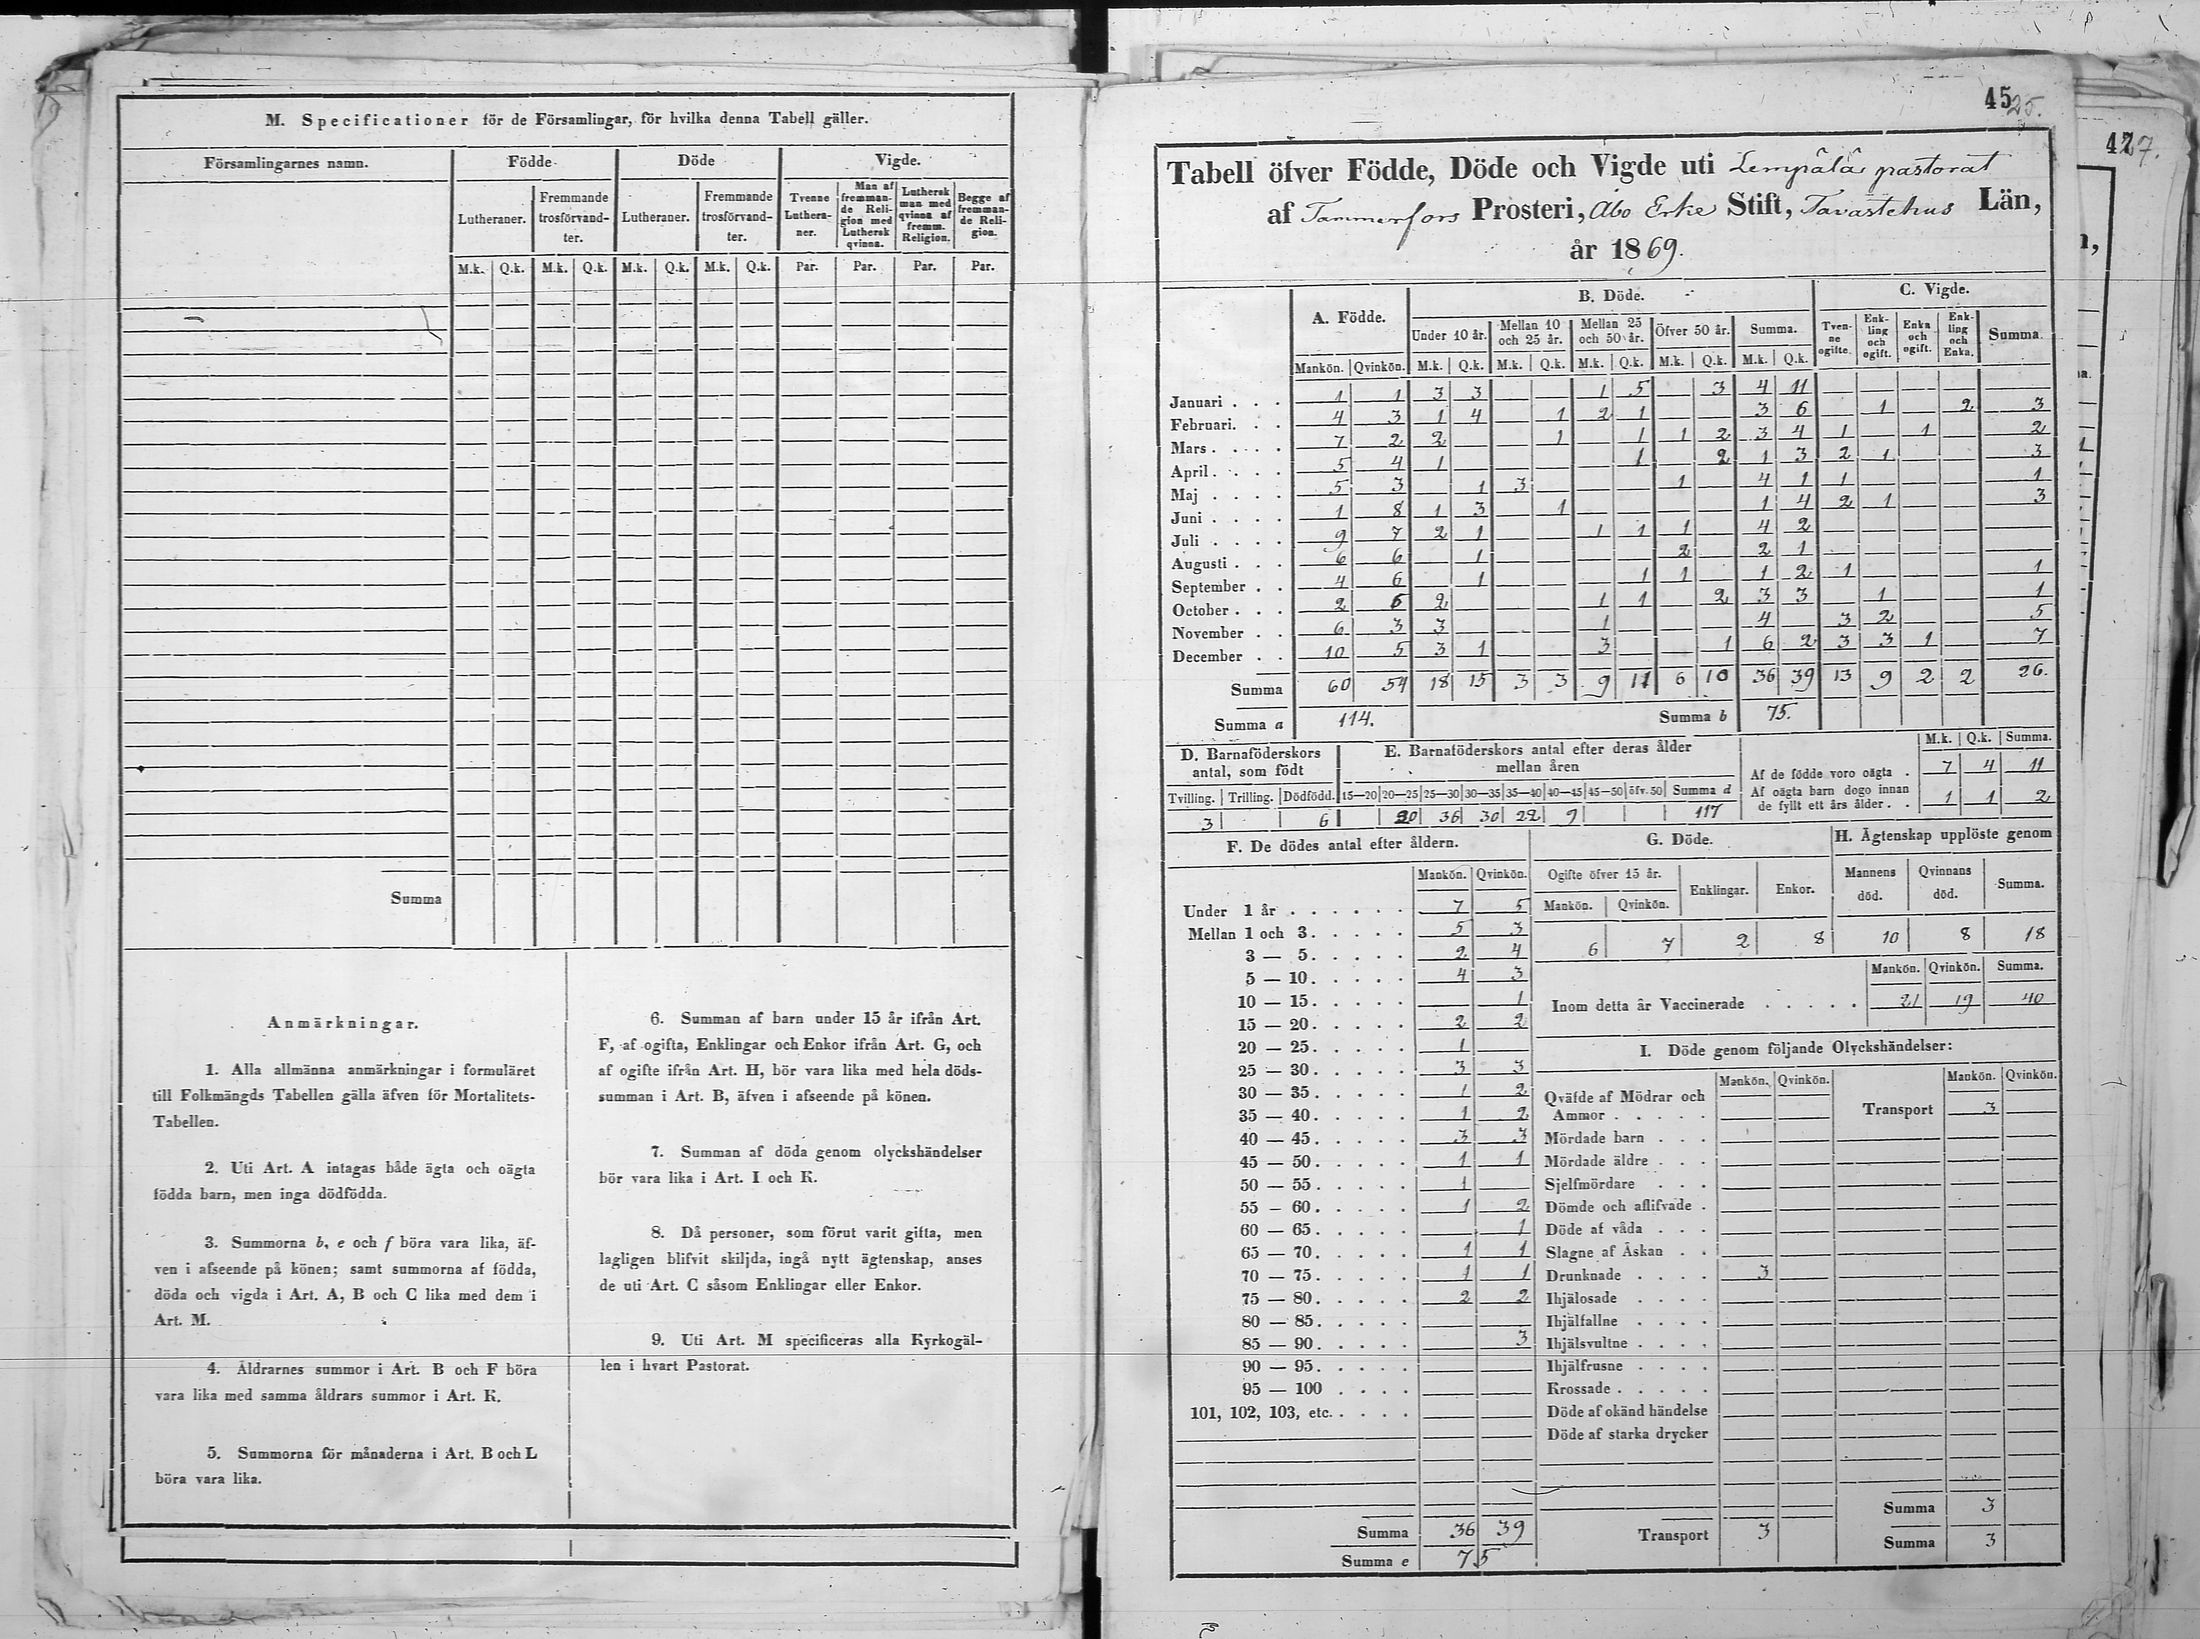 M. Specificationer för de Församlingar, för hvilka denna Tabell gäller.
Församlingarnes namn. Födde Döde Vigde.
Lutheraner. Fremmande trosförvandter. Lutheraner. Fremmande trosförvandter. Tvenne Lutheraner. Man af fremmande Religion med Luthersk qvinna. Luthersk man med qvinna af fremm. Religion. Begge af fremmande Religion.
M.k. Q.k. M.k. Q.k. M.k. Q.k. M.k. Q.k. Par. Par. Par. Par.
Summa
Anmärkningar.
1. Alla allmänna anmärkningar i formuläret
till Folkmängds Tabellen gälla äfven för Mortalitets-
Tabellen.
2. Uti Art. A intagas både ägta och oägta
födda barn, men inga dödfödda.
3. Summorna b, e och f böra vara lika, äf-
ven i afseende på könen; samt summorna af födda,
döda och vigda i Art. A, B och C lika med dem i
Art. M.
4. Åldrarnes summor i Art. B och F böra
vara lika med samma åldrars summor i Art. K.
5. Summorna för månaderna i Art. B och L
böra vara lika.
6. Summan af barn under 15 år ifrån Art.
F, af ogifta, Enklingar och Enkor ifrån Art. G, och
af ogifte ifrån Art. H, bör vara lika med hela döds-
summan i Art. B, äfven i afseende på könen.
7. Summan af döda genom olyckshändelser
bör vara lika i Art. I och K.
8. Då personer, som förut varit gifta, men
lagligen blifvit skiljda, ingå nytt ägtenskap, anses
de uti Art. C såsom Enklingar eller Enkor.
9. Uti Art. M specificeras alla Kyrkogäl-
len i hvart Pastorat.
45 25.
42 7.
Tabell öfver Födde, Döde och Vigde uti Lempälä pastorat
af Tammerfors Prosteri, Åbo Erke Stift, Tavastehus Län,
år 1869.
A. Födde. B. Döde. C. Vigde.
Under 10 år. Mellan 10 och 25 år. Mellan 25 och 50 år. Öfver 50 år. Summa. Tvenne ogifte. Enkling och ogift. Enka och ogift. Enkling och Enka. Summa.
Mankön. Qvinkön. M.k. Q.k. M.k. Q.k. M.k. Q.k. M.k. Q.k. M.k. Q.k.
Januari . . . 1 1 3 3 1 5 3 4 11
Februari. . . 4 3 1 4 1 2 1 3 6 1 2 3
Mars . . . . 7 2 2 1 1 1 2 3 4 1 1 2
April . . . . 5 4 1 1 2 1 3 2 1 3
Maj . . . . 5 3 1 3 1 4 1 1 1
Juni . . . . 1 8 1 3 1 1 4 2 1 3
Juli . . . . 9 7 2 1 1 1 1 4 2
Augusti . . . 6 6 1 2 2 1
September . . 4 6 1 1 1 1 2 1 1
October . . . 2 6 2 1 1 2 3 3 1 1
November . . 6 3 3 1 4 3 2 5
December . . 10 5 3 1 3 1 6 2 3 3 1 7
Summa 60 54 18 15 3 3 9 11 6 10 36 39 13 9 2 2 26.
Summa a 114. Summa b 75.
D. Barnaföderskors antal, som födt
Tvilling. Trilling. Dödfödd.
3 6
E. Barnaföderskors antal efter deras ålder mellan åren
15—20 20—25 25—30 30—35 35—40 40—45 45—50 öfv. 50 Summa d
20 36 30 22 9 117
M.k. Q.k. Summa.
Af de födde voro oägta . 7 4 11
Af oägta barn dogo innan
de fyllt ett års ålder . . 1 1 2
F. De dödes antal efter åldern.
Mankön. Qvinkön.
Under 1 år . . . . . . 7 5
Mellan 1 och 3. . . . . 5 3
3 — 5. . . . . 2 4
5 — 10. . . . . 4 3
10 — 15. . . . . 1
15 — 20. . . . . 2 2
20 — 25. . . . . 1
25 — 30. . . . . 3 3
30 — 35. . . . . 1 2
35 — 40. . . . . 1 2
40 — 45. . . . . 3 3
45 — 50. . . . . 1 1
50 — 55. . . . . 1
55 — 60. . . . . 1 2
60 — 65. . . . . 1
65 — 70. . . . . 1 1
70 — 75. . . . . 1 1
75 — 80. . . . . 2 2
80 — 85. . . . .
85 — 90. . . . . 3
90 — 95. . . . .
95 — 100 . . . .
101, 102, 103, etc. . . . .
Summa 36 39
Summa e 75
G. Döde.
Ogifte öfver 15 år. Enklingar. Enkor.
Mankön. Qvinkön.
6 7 2 8
H. Ägtenskap upplöste genom
Mannens död. Qvinnans död. Summa.
10 8 18
Mankön. Qvinkön. Summa.
Inom detta år Vaccinerade . . . . . 21 19 40
I. Döde genom följande Olyckshändelser:
Mankön. Qvinkön. Mankön. Qvinkön.
Qväfde af Mödrar och
Ammor . . . . . Transport 3
Mördade barn . . .
Mördade äldre . . .
Sjelfmördare . . .
Dömde och aflifvade .
Döde af våda . . .
Slagne af Åskan . .
Drunknade . . . . 3
Ihjälosade . . . .
Ihjälfallne . . . .
Ihjälsvultne . . . .
Ihjälfrusne . . . .
Krossade . . . . .
Döde af okänd händelse
Döde af starka drycker
Summa 3
Transport 3 Summa 3